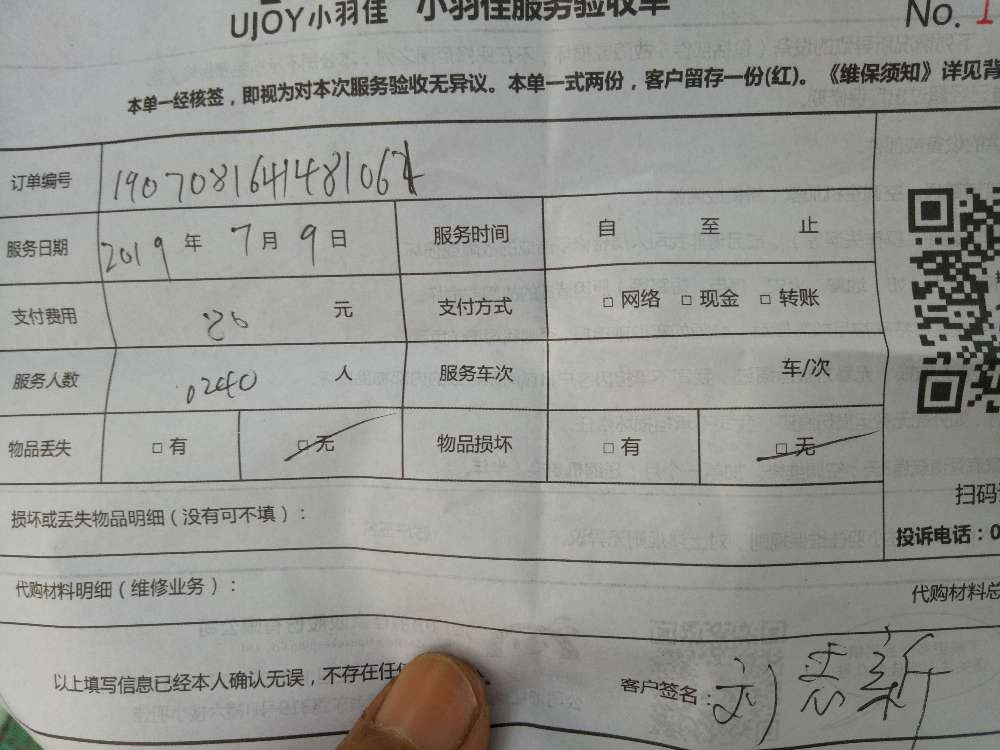 UJOY小羽佳 小羽佳服务验收单
No. 1
本单一经核签，即视为对本次服务验收无异议。本单一式两份，客户留存一份(红)。《维保须知》详见背
订单编号
服务日期 2019 年 7 月 9 日 服务时间 自 至 止
支付费用 元 支付方式 □ 网络 □ 现金 □ 转账
服务人数 0240 人 服务车次 车/次
物品丢失 □ 有 □ 无 物品损坏 □ 有 □ 无
扫码
损坏或丢失物品明细（没有可不填）：
投诉电话：0
代购材料明细（维修业务）：
代购材料总
以上填写信息已经本人确认无误，不存在任
客户签名：